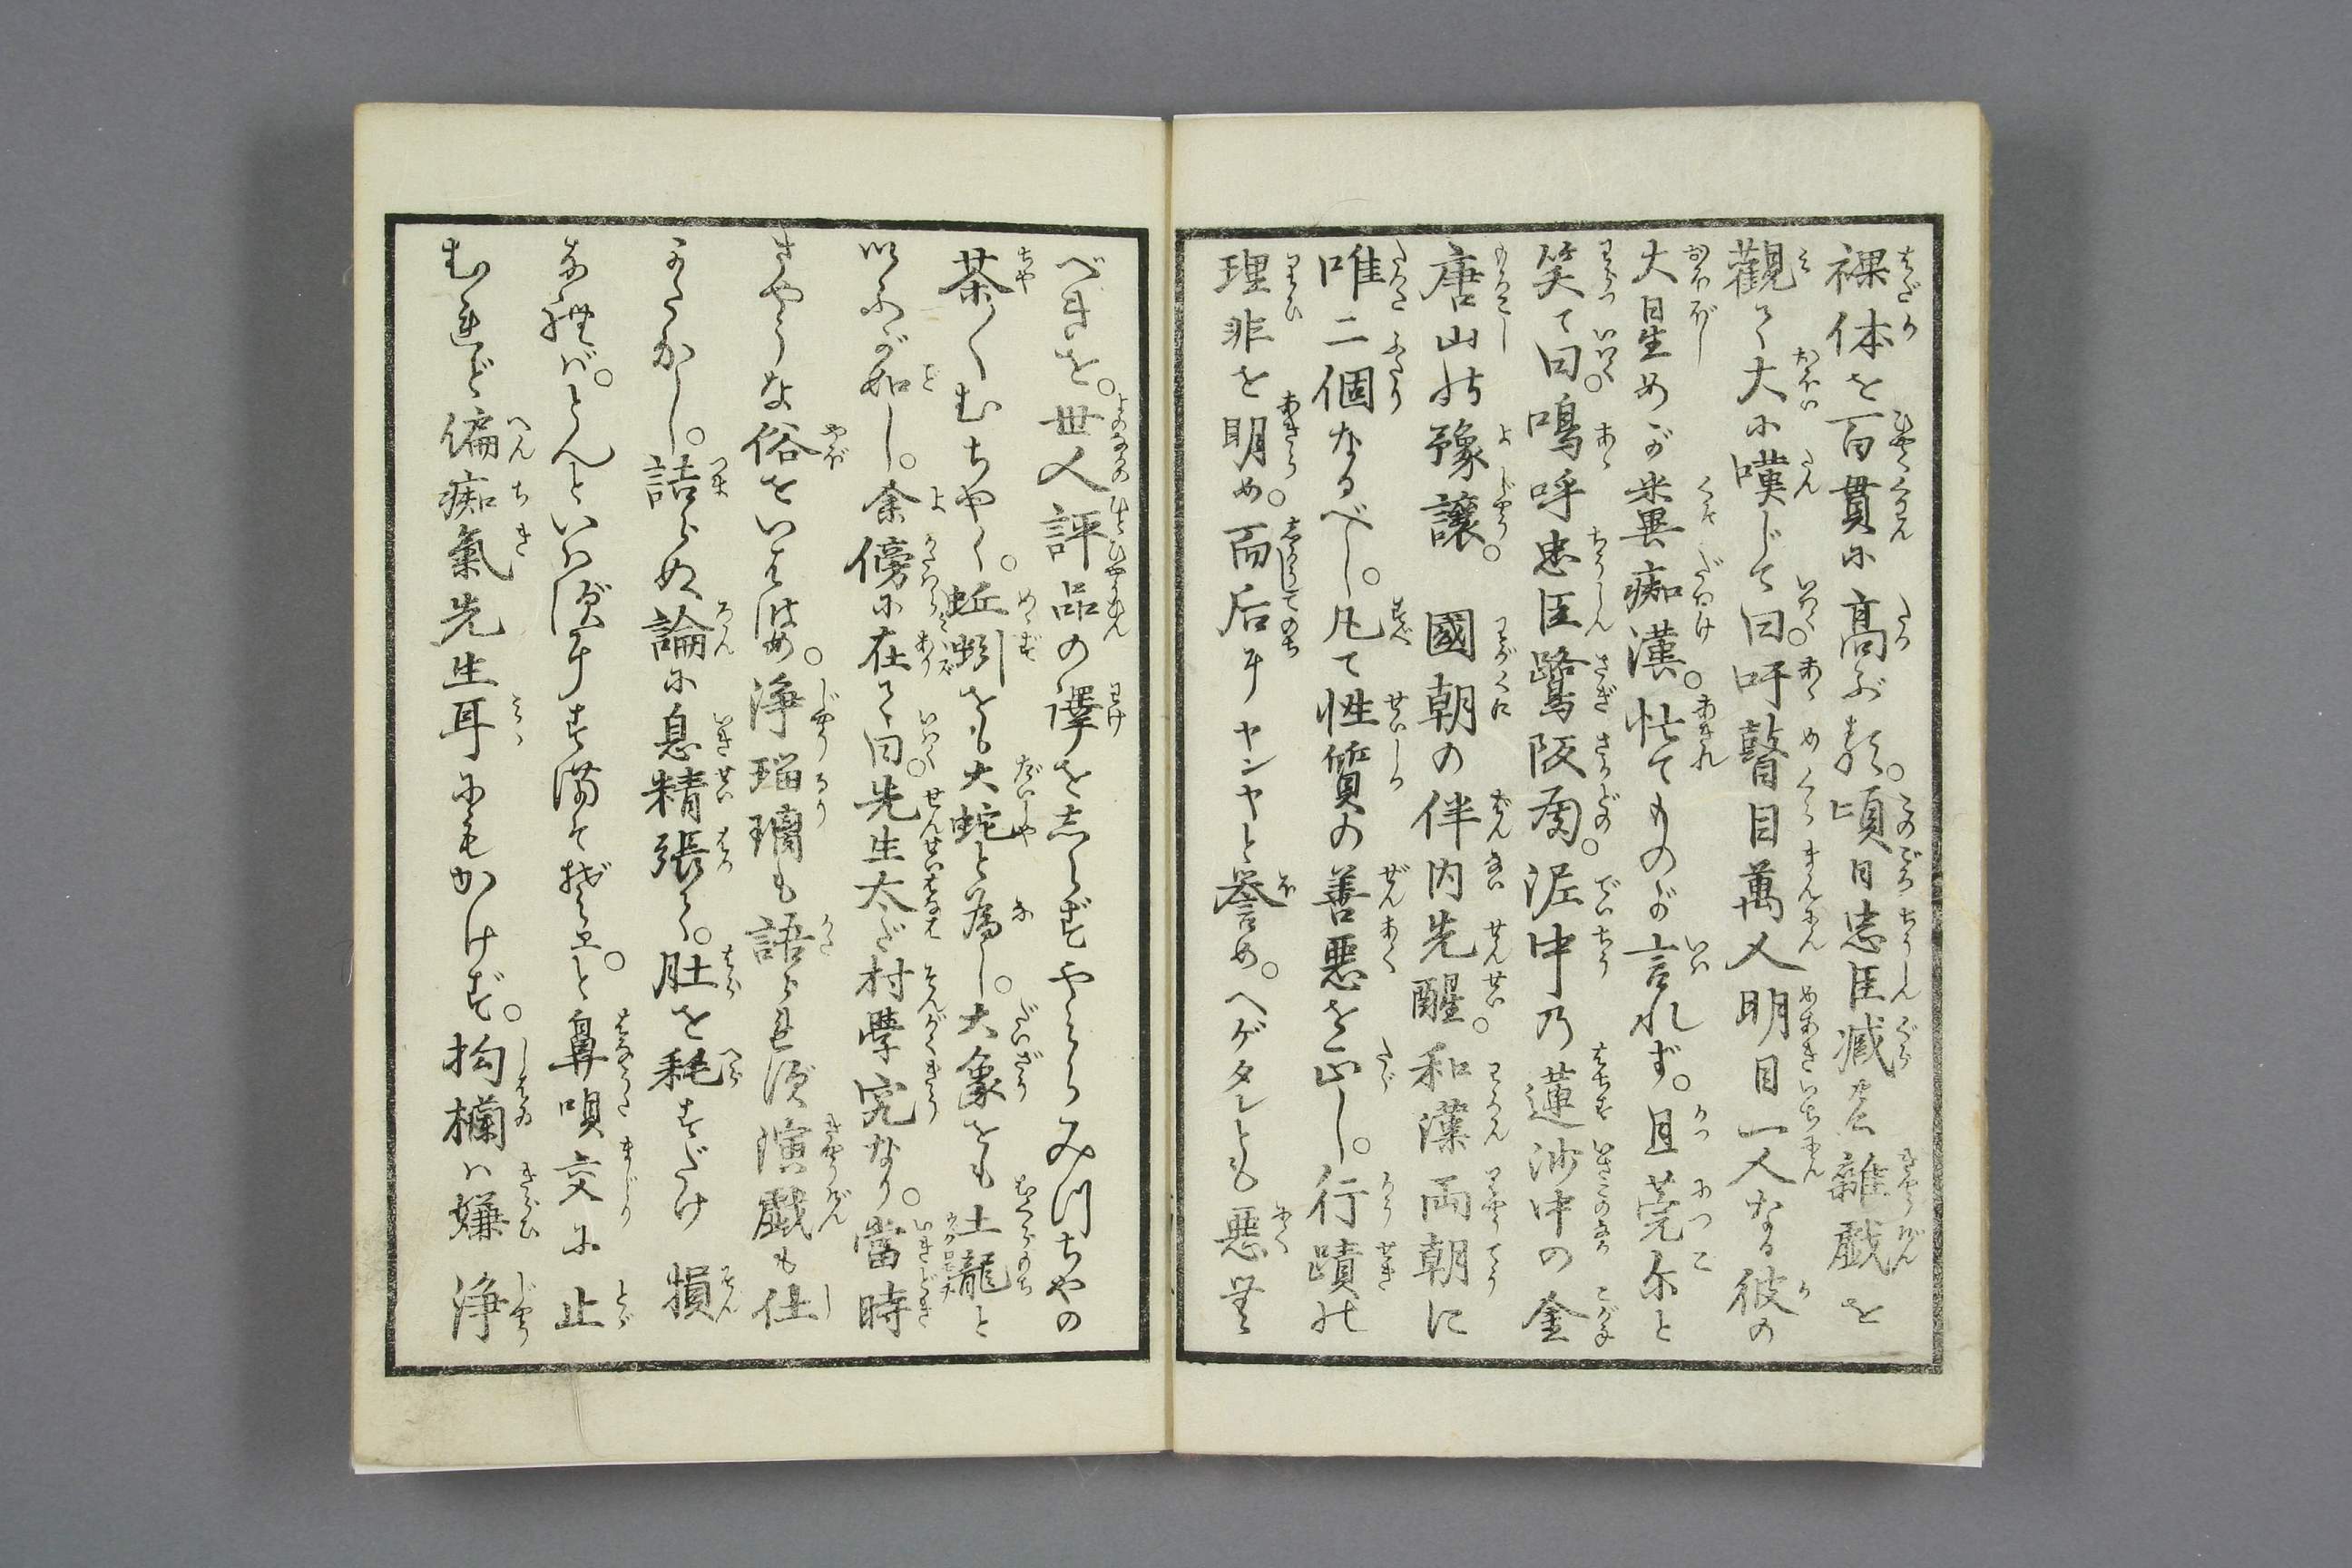 裸体を百貫に高ぶる。頃日忠臣蔵の雑戯を
観て大に嘆じて曰。吁瞽目萬人明目一人なる彼の
大星めが米糞痴漢。恾てものが言れず。且莞尓と
笑て曰。嗚呼忠臣鷺阪甸。泥中乃蓮沙中の金
唐山の豫譲 國朝の伴内先醒。和漢両朝に
唯二個なるべし。凡て性質の善悪を正し。行蹟の
理非を明め。而后チヤンヤと誉め。ヘゲタレとも悪む
べきを。世人評品の譯を志らずやたらみつちやの
茶〱むちや〱。蚯蚓をも大蛇と為し。大象をも土龍と
以ふが如し。余傍に在て曰。先生太だ村學究なり。當時
さやうな俗をいはゞ。浄瑠璃も語られず演戯も仕
がたかし。詰らぬ論に息精張て。肚を耗すだけ 損
なれば。とんといはずにすまそぞヱ。と鼻唄交に止
むれど偏痴氣先生耳にもかけず。抅欄は嫌 浄